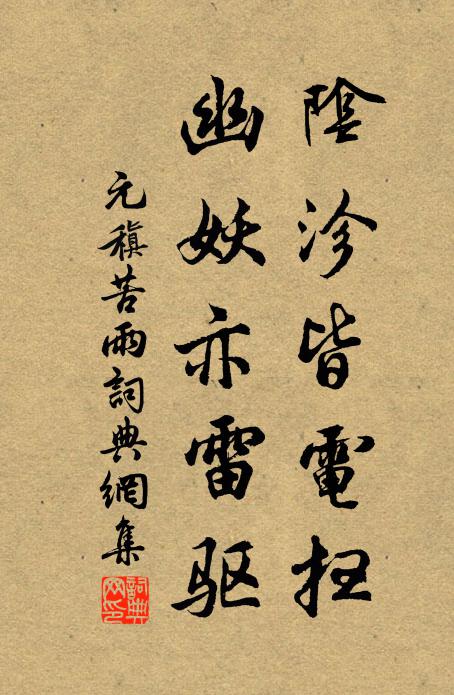 陰沴皆電扫
幽妖亦雷驱
元稹苦雨詞典網集
詞典網印